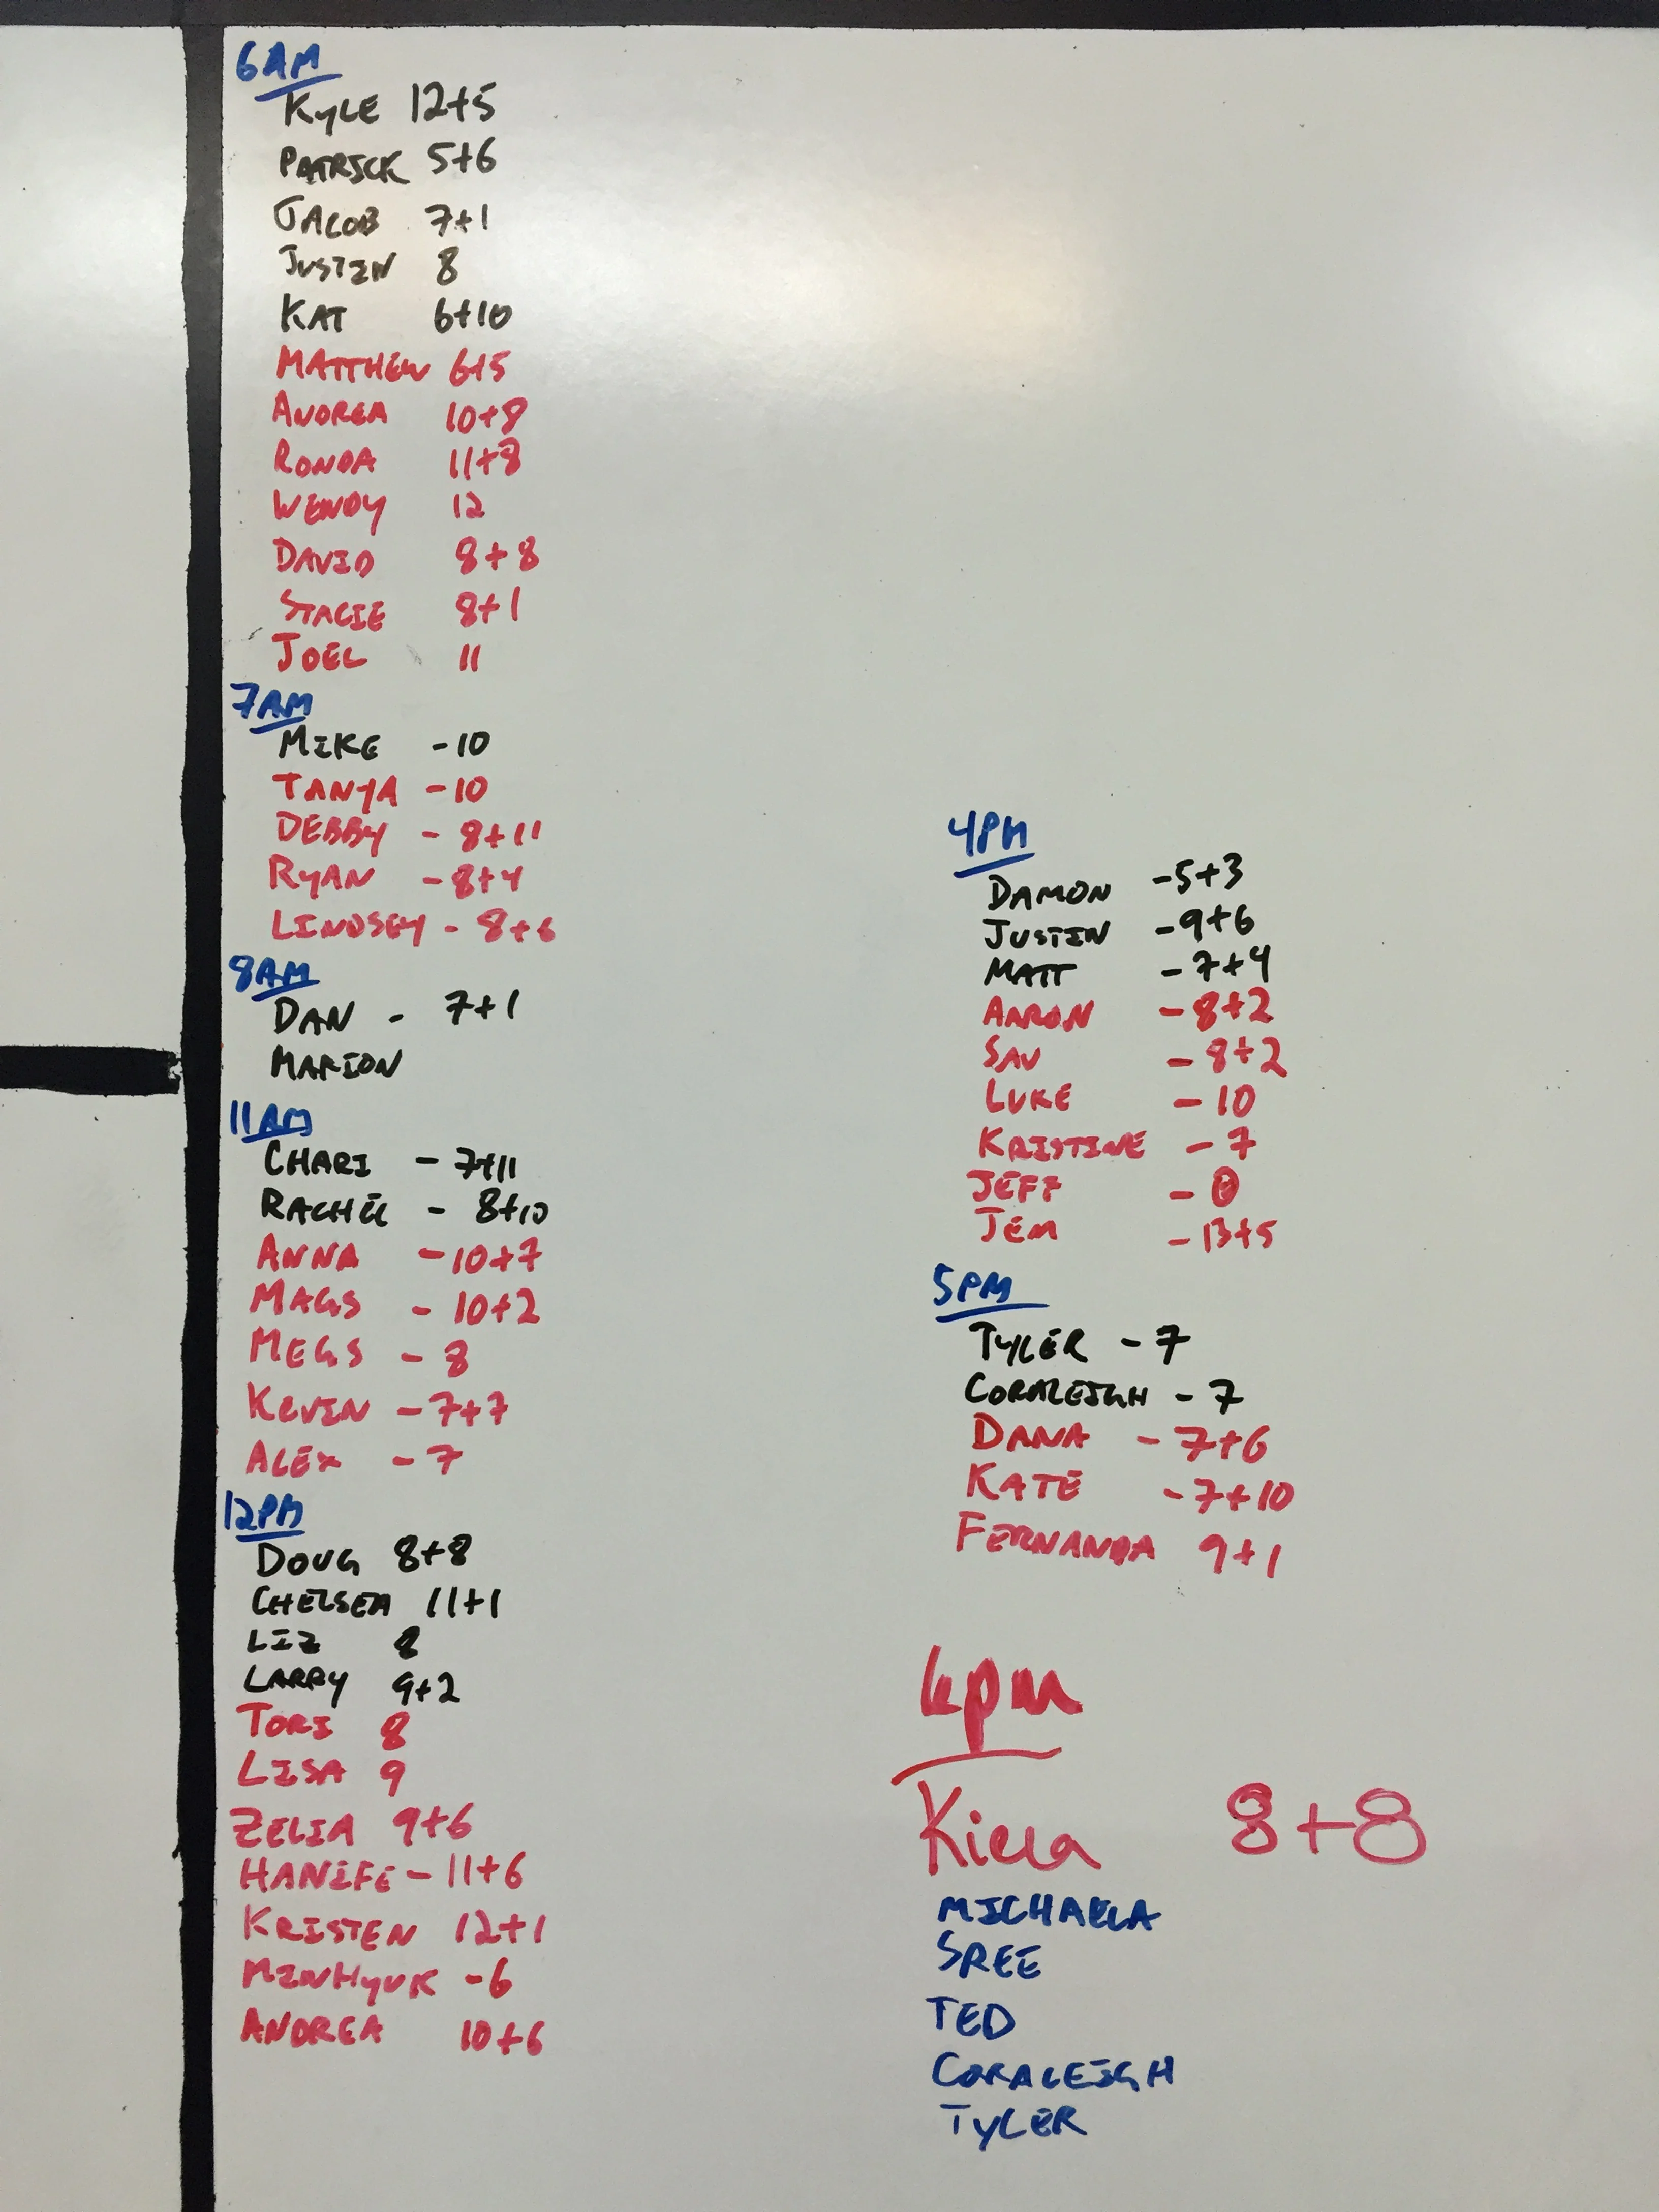 6AM
KYLE 12+5
PATRICK 5+6
JACOB 7+1
JUSTIN 8
KAT 6+10
MATTHEW 6+5
ANDREA 10+8
RONDA 11+8
WENDY 12
DAVID 8+8
STACIE 8+1
JOEL 11
7AM
MIKE -10
TANYA -10
DEBBY - 8+11
RYAN -8+4
LINDSEY - 8+6
8AM
DAN - 7+1
MARION
11AM
CHARI - 7+11
RACHEL - 8+10
ANNA -10+7
MAGS - 10+2
MEGS - 8
KEVIN -7+7
ALEX - 7
12PM
DOUG 8+8
CHELSEA 11+1
LIZ 8
LARRY 9+2
TORI 8
LISA 9
ZELIA 9+6
HANIFE - 11+6
KRISTEN 12+1
MINHYUK -6
ANDREA 10+6
4PM
DAMON -5+3
JUSTIN -9+6
MATT - 7+4
AARON - 8+2
SAV - 8+2
LUKE - 10
KRISTINE - 7
JEFF -
JEM - 13+5
5PM
TYLER - 7
CORALEIGH - 7
DANA - 7+6
KATE - 7+10
FERNANDA 9+1
6pm
Kiera 8+8
MICHAELA
SREE
TED
CORALEIGH
TYLER